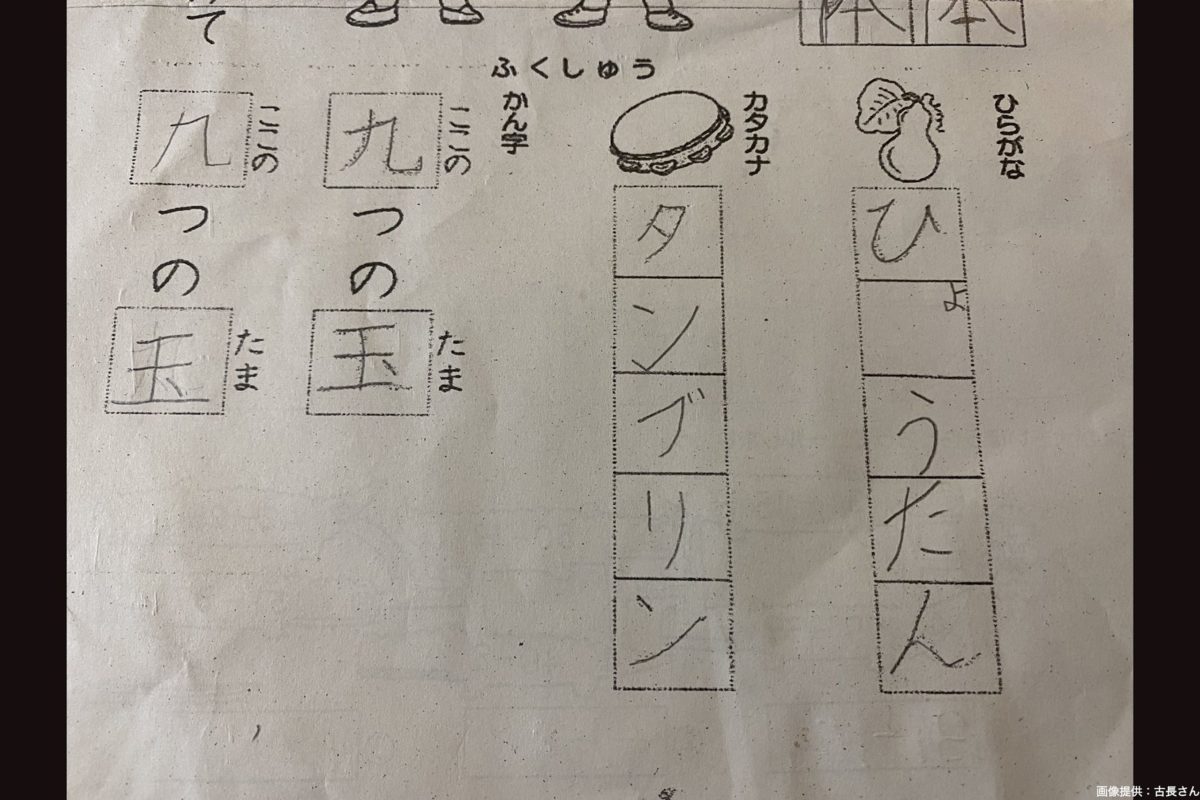 て
ふくしゅう
ひらがな
ひょうたん
カタカナ
タンブリン
かん字
ここの たま
九つの玉
ここの たま
九つの玉
画像提供：古長さん